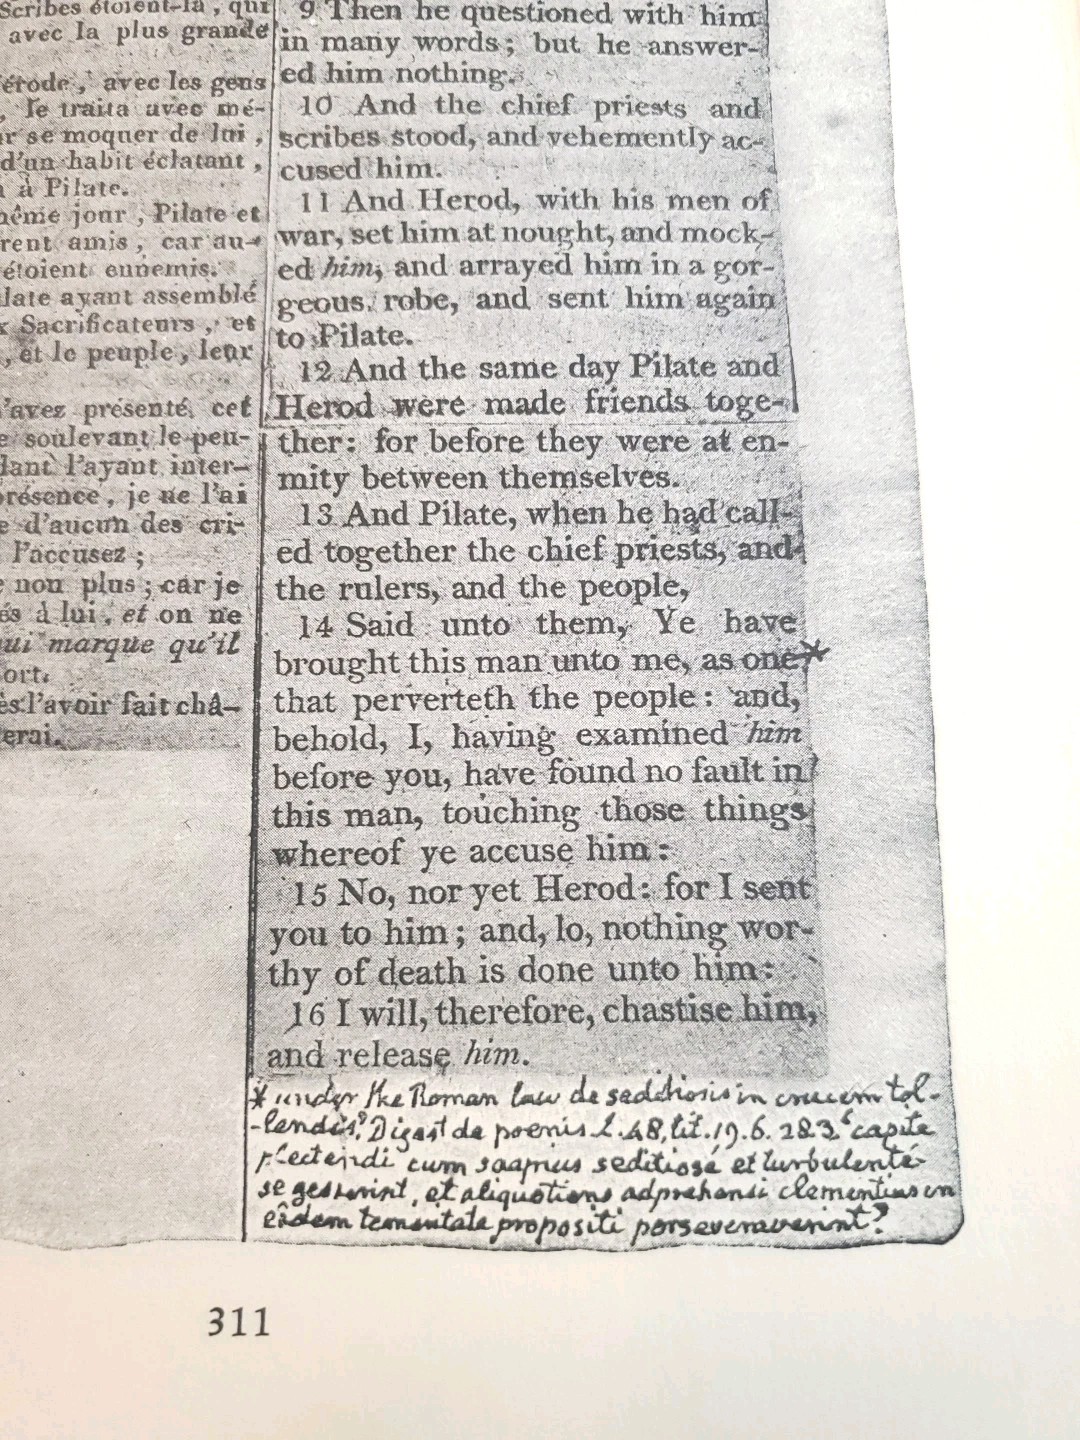 Scribes étoient-là, qui
avec la plus grande
érode, avec les gens
, le traita avec mé-
r se moquer de lui,
d'un habit éclatant,
à Pilate.
même jour, Pilate et
rent amis, car au-
étoient ennemis.
late ayant assemblé
x Sacrificateurs, et
, et le peuple, leur
'avez présenté cet
e soulevant le peu-
dant l'ayant inter-
présence, je ne l'ai
e d'aucun des cri-
l'accusez;
e non plus; car je
és à lui, et on ne
ui marque qu'il
ort.
ès l'avoir fait châ-
erai.
9 Then he questioned with him
in many words; but he answer-
ed him nothing.
10 And the chief priests and
scribes stood, and vehemently ac-
cused him.
11 And Herod, with his men of
war, set him at nought, and mock-
ed him, and arrayed him in a gor-
geous robe, and sent him again
to Pilate.
12 And the same day Pilate and
Herod were made friends toge-
ther: for before they were at en-
mity between themselves.
13 And Pilate, when he had call-
ed together the chief priests, and
the rulers, and the people,
14 Said unto them, Ye have
brought this man unto me, as one*
that perverteth the people: and,
behold, I, having examined him
before you, have found no fault in
this man, touching those things
whereof ye accuse him:
15 No, nor yet Herod: for I sent
you to him; and, lo, nothing wor-
thy of death is done unto him:
16 I will, therefore, chastise him,
and release him.
* under the Roman law de seditiosis in crucem tol-
-lendis? Digest de poenis l. 48, tit. 19. 6. 28.3. 'capite
plectendi cum saepius seditiosé et turbulenté
se gesserint, et aliquotiens adprehensi clementius in
eâdem temeritate propositi perseveraverint?
311